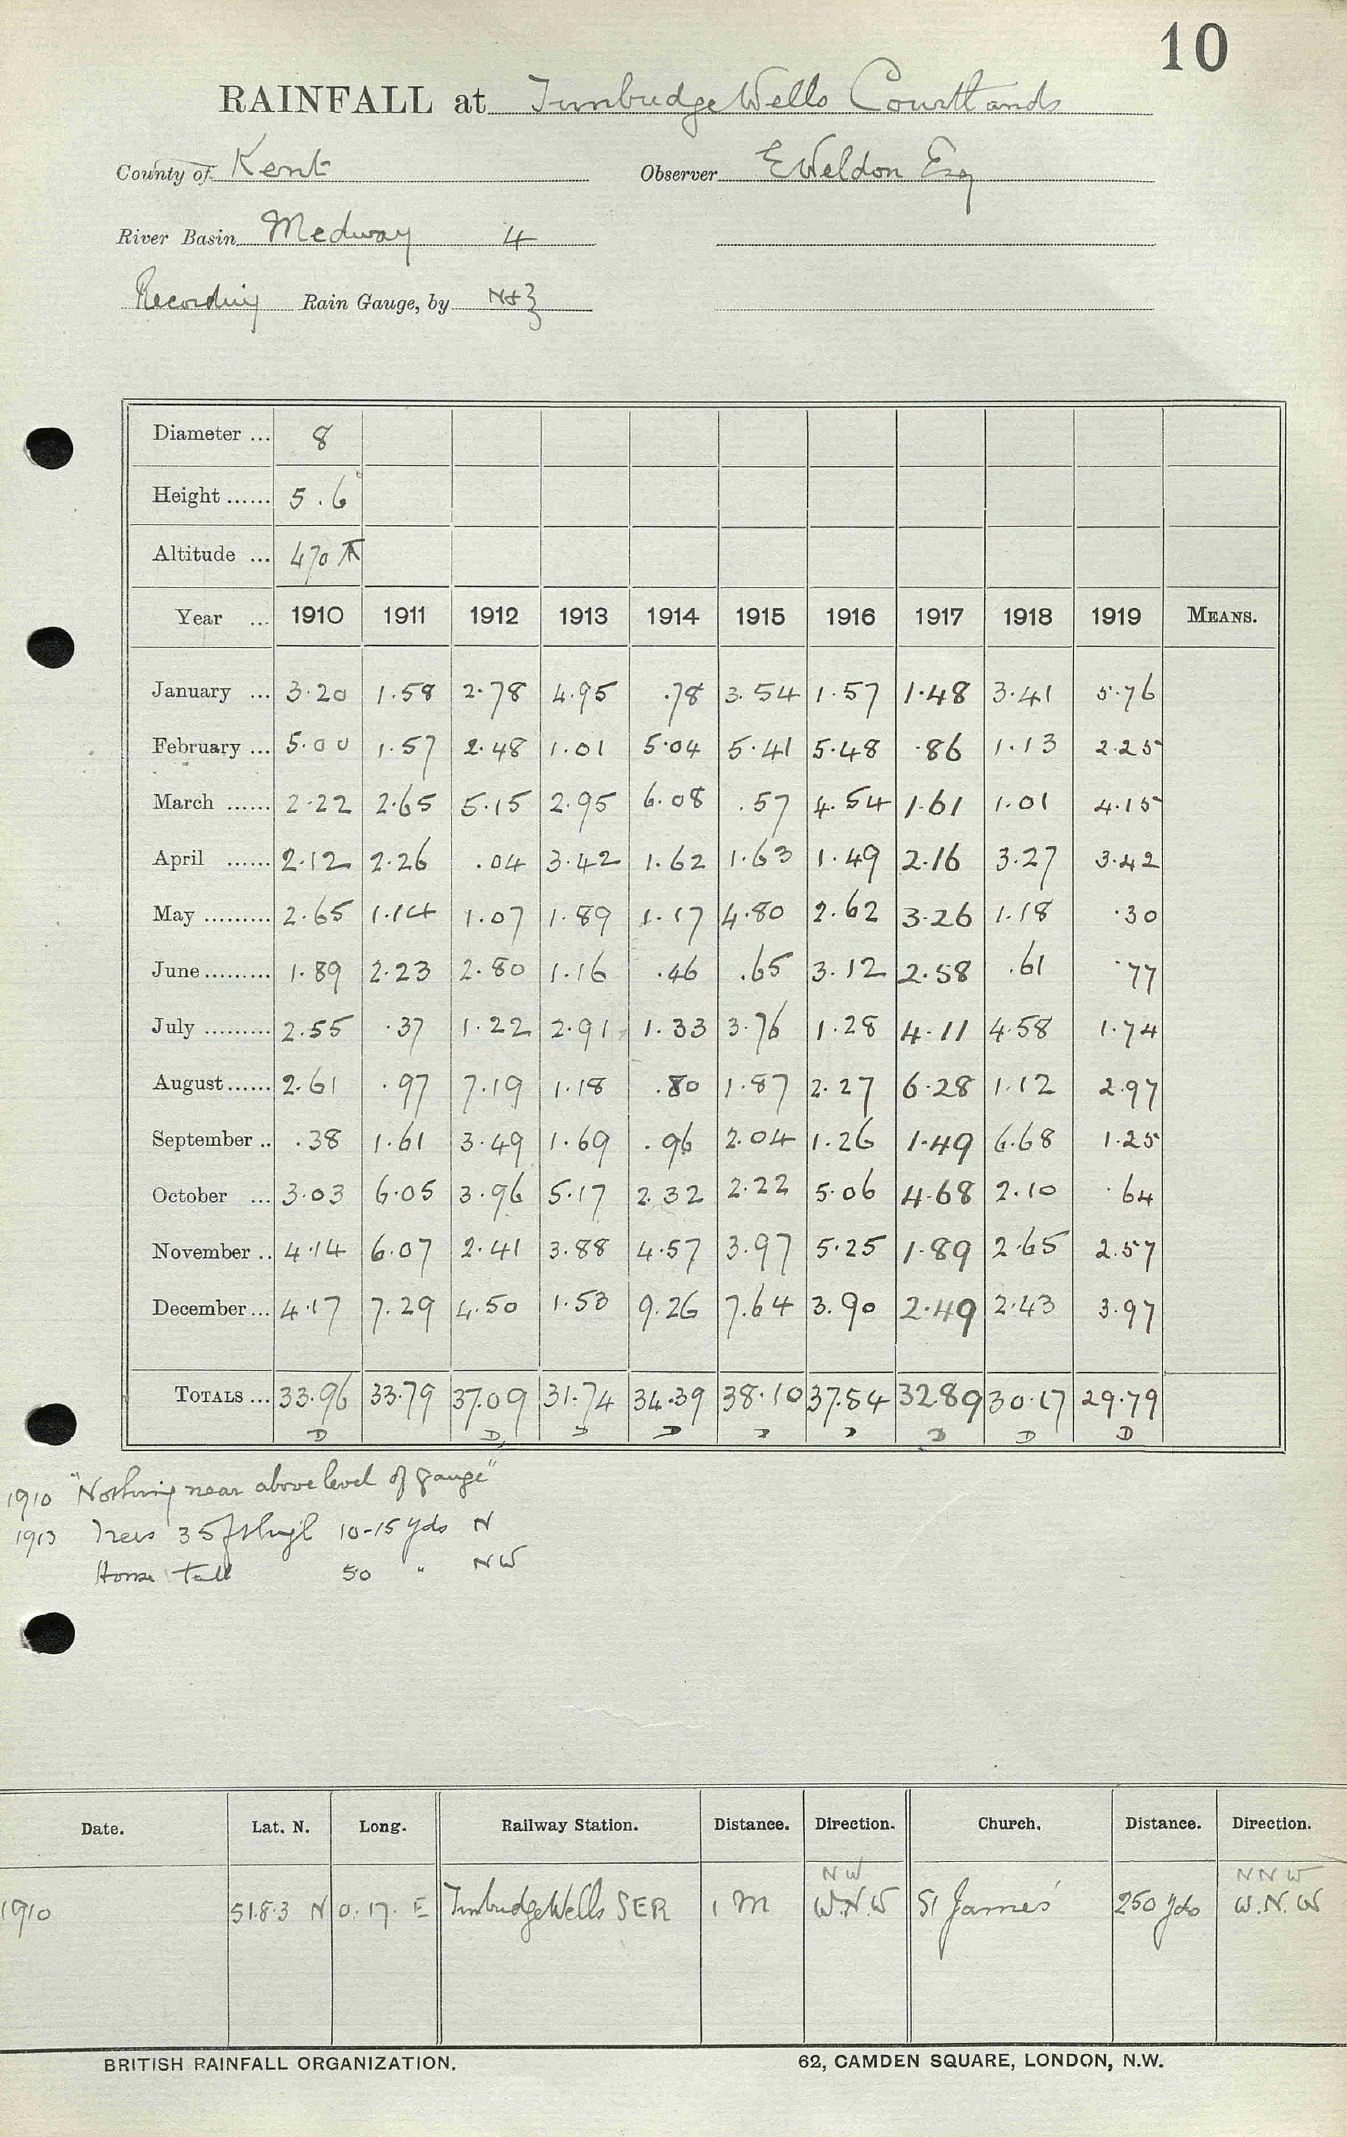 10
RAINFALL at Tunbridge Wells Courtlands
County of Kent Observer E Weldon Esq
River Basin Medway 4
Recording Rain Gauge, by N+Z
Diameter ... 8
Height ...... 5.6
Altitude ... 470 ft
Year ... 1910 1911 1912 1913 1914 1915 1916 1917 1918 1919 MEANS.
January ... 3.20 1.58 2.78 4.95 .78 3.54 1.57 1.48 3.41 5.76
February ... 5.00 1.57 2.48 1.01 5.04 5.41 5.48 .86 1.13 2.25
March ...... 2.22 2.65 5.15 2.95 6.08 .57 4.54 1.61 1.01 4.15
April ...... 2.12 2.26 .04 3.42 1.62 1.63 1.49 2.16 3.27 3.42
May ......... 2.65 1.14 1.07 1.89 1.17 4.80 2.62 3.26 1.18 .30
June ......... 1.89 2.23 2.80 1.16 .46 .65 3.12 2.58 .61 .77
July ......... 2.55 .37 1.22 2.91 1.33 3.76 1.28 4.11 4.58 1.74
August ...... 2.61 .97 7.19 1.18 .80 1.87 2.27 6.28 1.12 2.97
September .. .38 1.61 3.49 1.69 .96 2.04 1.26 1.49 6.68 1.25
October ... 3.03 6.05 3.96 5.17 2.32 2.22 5.06 4.68 2.10 .64
November .. 4.14 6.07 2.41 3.88 4.57 3.97 5.25 1.89 2.65 2.57
December ... 4.17 7.29 4.50 1.53 9.26 7.64 3.90 2.49 2.43 3.97
TOTALS ... 33.96 33.79 37.09 31.74 34.39 38.10 37.84 32.89 30.17 29.79
D D D D D D D D D
1910 "Nothing near above level of gauge"
1913 Trees 35ft high 10-15 yds N
House tall 50 " NW
Date. Lat. N. Long. Railway Station. Distance. Direction. Church. Distance. Direction.
NW NNW
1910 51.8.3 N 0.17. E Tunbridge Wells SER 1 M W.N.W St James' 250 yds W.N.W
BRITISH RAINFALL ORGANIZATION. 62, CAMDEN SQUARE, LONDON, N.W.